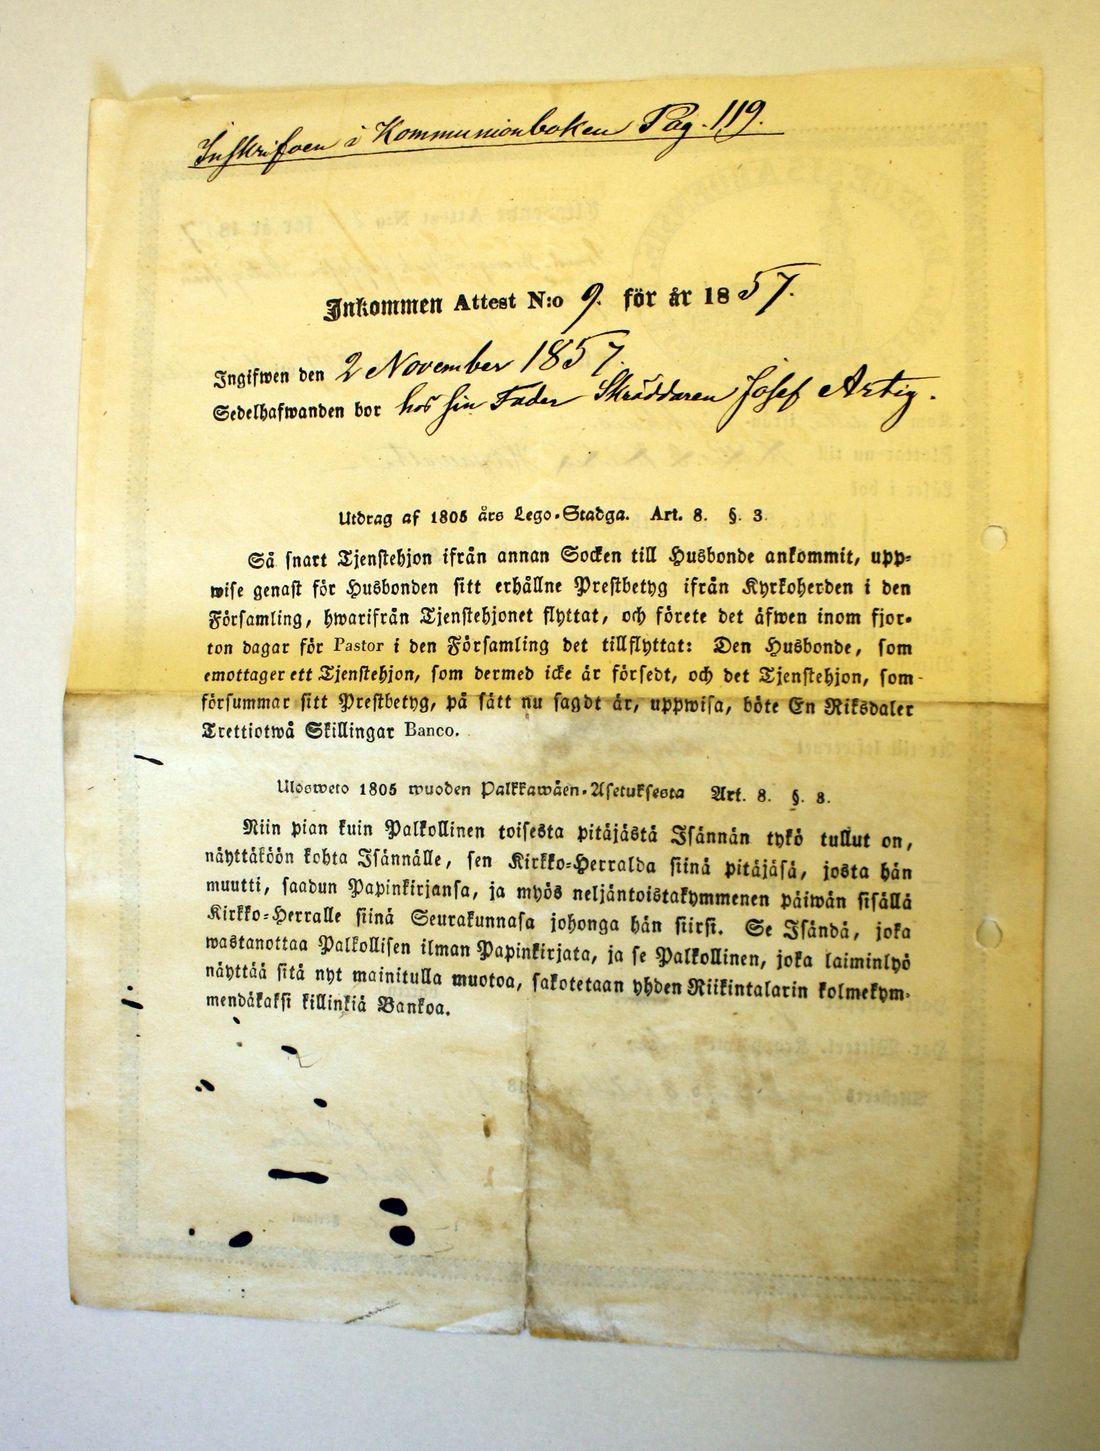 Inskrifven i Kommunionboken Pag. 119.
Inkommen Attest N:o 9. för år 1857.
Ingifwen den 2 November 1857.
Sedelhafwanden bor hos sin Fader Skräddaren Josef Artig.
Utdrag af 1805 års Lego-Stadga. Art. 8. §. 3.
Så snart Tjenstehjon ifrån annan Socken till Husbonde ankommit, upp-
wise genast för Husbonden sitt erhållne Prestbetyg ifrån Kyrkoherden i den
Församling, hwarifrån Tjenstehjonet flyttat, och förete det äfwen inom fjor-
ton dagar för Pastor i den Församling det tillflyttat: Den Husbonde, som
emottager ett Tjenstehjon, som dermed icke är försedt, och det Tjenstehjon, som
försummar sitt Prestbetyg, på sätt nu sagdt är, uppwisa, böte En Riksdaler
Trettiotwå Skillingar Banco.
Ulosweto 1805 wuoden Palkkawäen-Asetuksesta Art. 8. §. 3.
Niin pian kuin Palkollinen toisesta pitäjästä Isännän tykö tullut on,
näyttäköön kohta Isännälle, sen Kirkko-Herralda siinä pitäjäsä, josta hän
muutti, saadun Papinkirjansa, ja myös neljäntoistakymmenen päiwän sisällä
Kirkko-Herralle siinä Seurakunnasa johonga hän siirsi. Se Isändä, joka
wastanottaa Palkollisen ilman Papinkirjata, ja se Palkollinen, joka laiminlyö
näyttää sitä nyt mainitulla muotoa, sakotetaan yhden Riikintalarin kolmekym-
mendäkaksi killinkiä Bankoa.